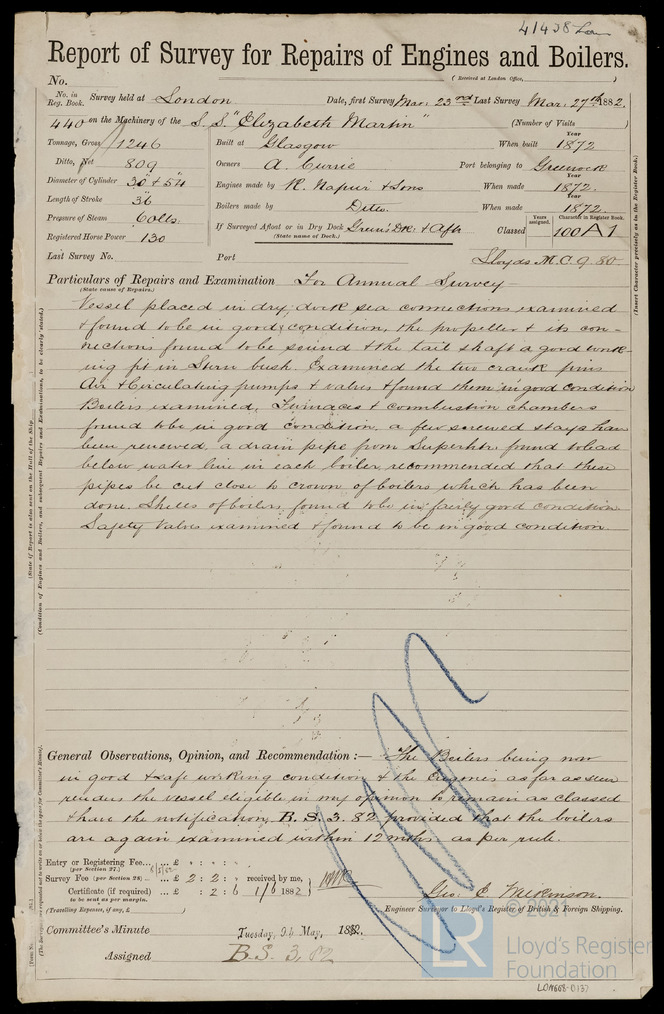 41438 Lon
Report of Survey for Repairs of Engines and Boilers.
No. (Received at London Office, )
No. in Reg. Book. Survey held at London Date, first Survey Mar: 23rd Last Survey Mar: 27th 1882.
440 on the Machinery of the S.S. "Elizabeth Martin" (Number of Visits )
Tonnage, Gross 1246 Built at Glasgow When built Year 1872
Ditto, Net 809 Owners A. Currie Port belonging to Greenock
Diameter of Cylinder 30" & 54 Engines made by R. Napier & Sons When made Year 1872.
Length of Stroke 36 Boilers made by Ditto. When made Year 1872.
Pressure of Steam 60 lbs. If Surveyed Afloat or in Dry Dock Green's D.Dk: & Aflt Classed Years assigned. Character in Register Book. 100 A1
(State name of Dock.)
Registered Horse Power 130
Last Survey No. Port Lloyds M.C. 9. 80
Particulars of Repairs and Examination For Annual Survey
(State cause of Repairs.)
Vessel placed in dry dock sea connections examined
& found to be in good condition, the propeller & its con-
nections found to be sound & the tail shaft a good work-
ing fit in Stern bush. Examined the two crank pins
Air & Circulating pumps & valves & found them in good condition
Boilers examined, Furnaces & combustion chambers
found to be in good condition, a few screwed stays have
been renewed, a drain pipe from Superhtr found to lead
below water line in each boiler, recommended that these
pipes be cut close to crown of boilers which has been
done. Shells of boilers found to be in fairly good condition
Safety Valves examined & found to be in good condition.
General Observations, Opinion, and Recommendation :— The Boilers being now
in good & safe working condition & the Engines as far as seen
renders the vessel eligible in my opinion to remain as classed
& have the notification, B.S. 3. 82 provided that the boilers
are again examined within 12 mths as per rule.
Entry or Registering Fee... ... £ : :
(per Section 27.)
Survey Fee (per Section 28) ... £ 2 : 2 : received by me,
Certificate (if required) ... £ : 2 : 6 1/6 1882
to be sent as per margin.
(Travelling Expense, if any, £ )
Geo: E. Mclkinson.
Engineer Surveyor to Lloyd's Register of British & Foreign Shipping.
Committee's Minute Tuesday, May, 1882.
Assigned B.S. 3, 82
(Insert Character precisely as in the Register Book.)
(State if Report is also sent on the Hull of the Ship.
(Condition of Engines and Boilers, and subsequent Repairs and Examinations, to be clearly stated.)
© 2021
LR
Lloyd's Register
Foundation
LON668-0137